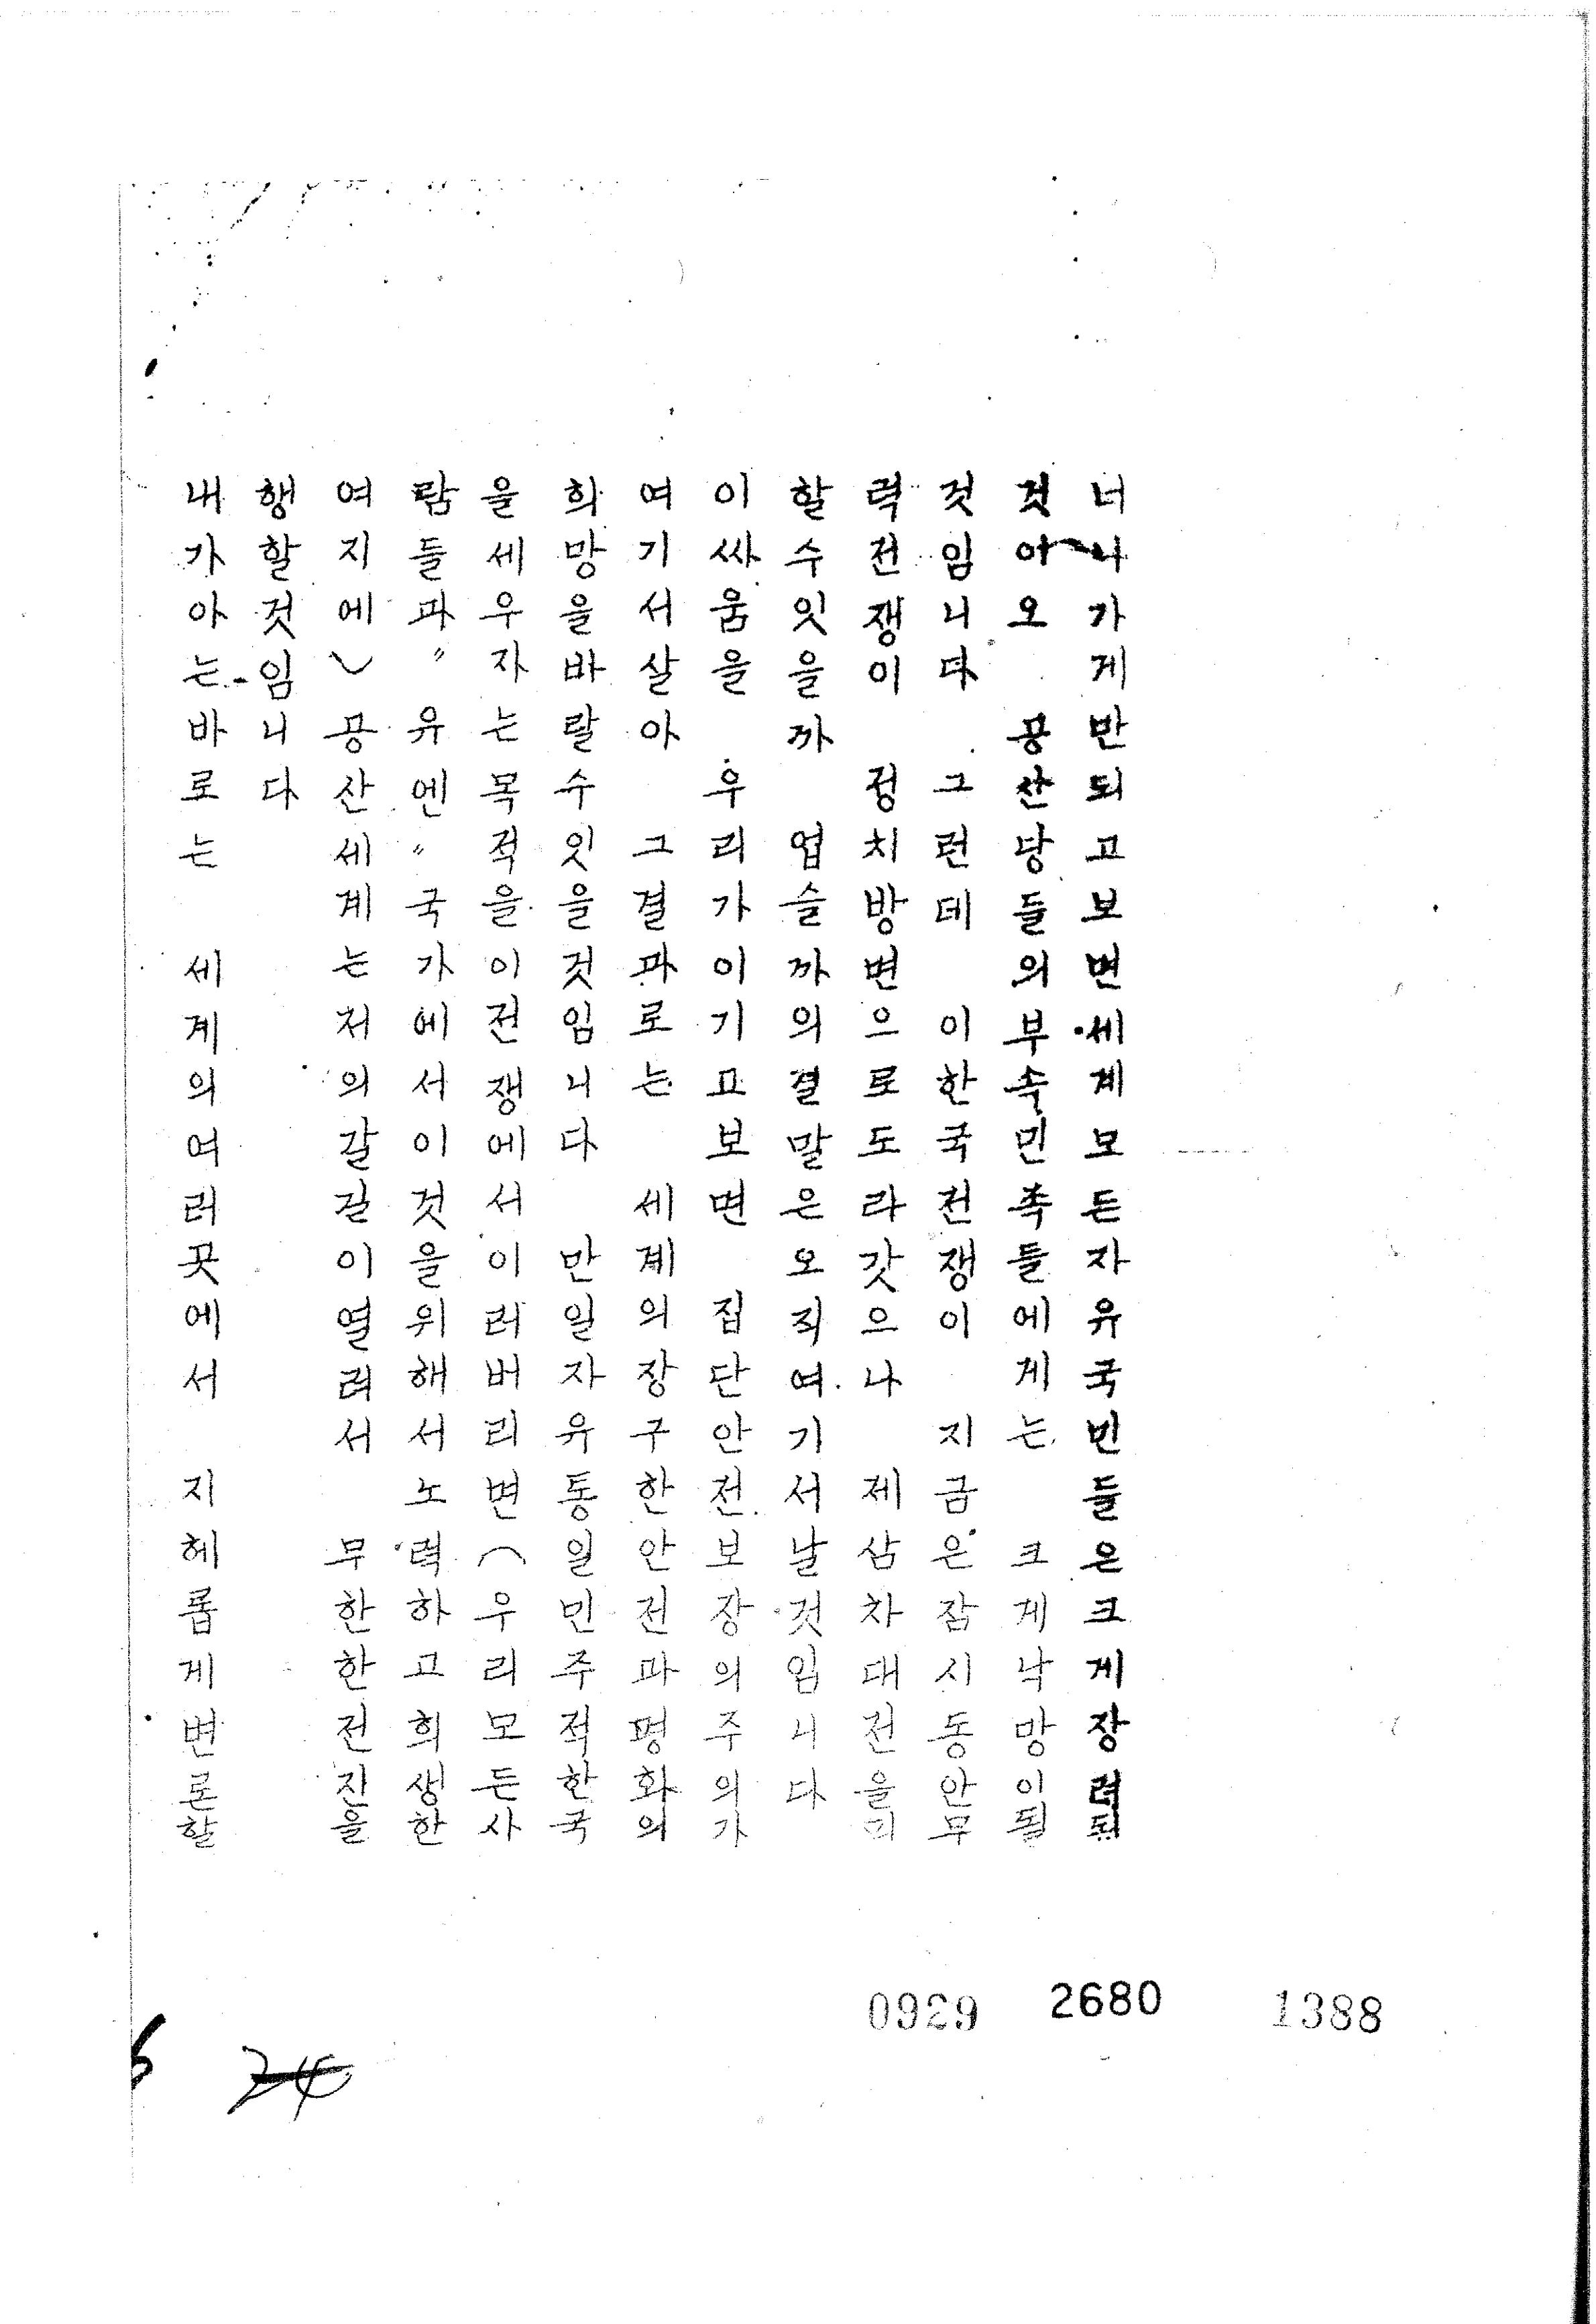 너나가게만되고보면세계모든자유국민들은크게장려되
것아오 공산당들의부속민족들에게는 크게낙망이될
것임니다 그런데 이한국전쟁이 지금은잠시동안무
력전쟁이 정치방면으로도라갓으나 제삼차대전을피
할수잇을까 업슬까의결말은오직여기서날것임니다
이싸움을 우리가이기고보면 집단안전보장의주의가
여기서살아 그결과로는 세계의장구한안전과평화의
희망을바랄수잇을것임니다 만일자유통일민주적한국
을세우자는목적을이전쟁에서이러버리면(우리모든사
람들과"유엔"국가에서이것을위해서 노력하고희생한
여지에)공산세계는저의갈길이열려서 무한한전진을
행할것임니다
내가아는바로는 세계의여러곳에서 지헤롭게변론할
0929 2680 1388
24